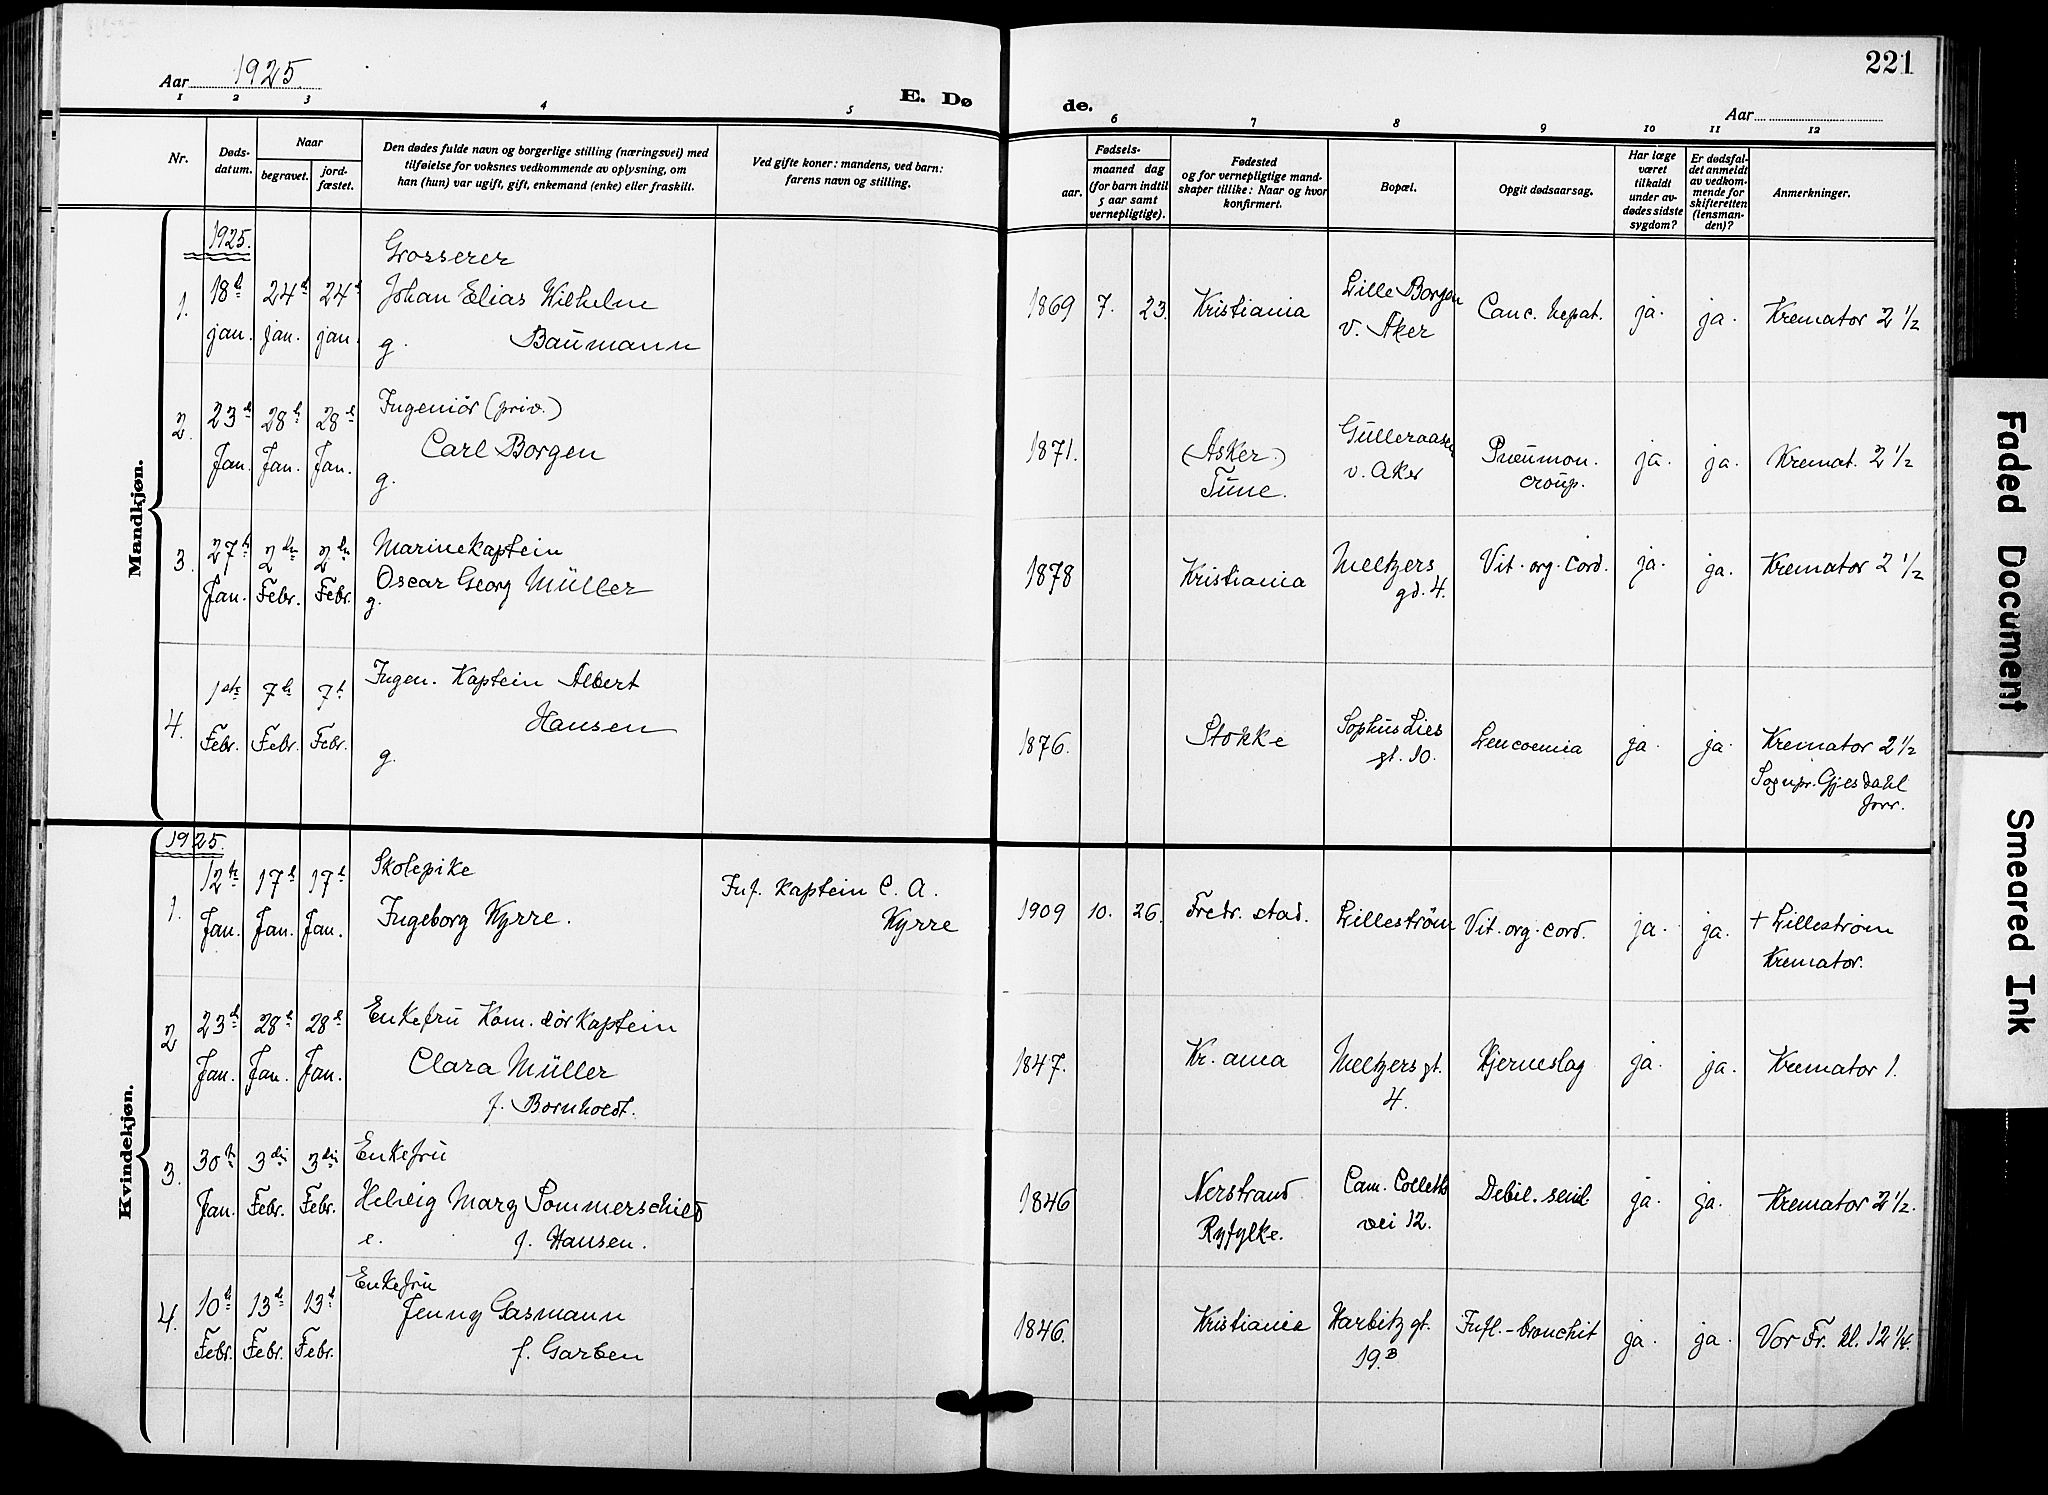 Aar 1925.
E. Dø
de.
221
Aar
1 2 3 4 5
6 7 8 9 10 11 12
Nr.
Døds-
datum.
Naar
begravet.
jord-
fæstet.
Den dødes fulde navn og borgerlige stilling (næringsvei) med
tilføielse for voksnes vedkommende av oplysning, om
han (hun) var ugift, gift, enkemand (enke) eller fraskilt.
Ved gifte koner: mandens, ved barn:
farens navn og stilling.
Fødsels-
aar.
maaned dag
(for barn indtil
5 aar samt
vernepligtige).
Fødested
og for vernepligtige mand-
skaper tillike: Naar og hvor
konfirmert.
Bopæl.
Opgit dødsaarsag.
Har læge
været
tilkaldt
under av-
dødes sidste
sygdom?
Er dødsfal-
det anmeldt
av vedkom-
mende for
skifteretten
(lensman-
den)?
Anmerkninger.
Mandkjøn.
1925.
1. 18de jan. 24de jan. 24de jan.
Grosserer
Johan Elias Wilhelm
g. Baumann
1869 7. 23. Kristiania
Lille Borgen
v. Aker
Canc. hepat. ja. ja. Kremator 2 1/2
2. 23de Jan. 28de Jan. 28de Jan.
Ingeniør (priv.)
Carl Borgen
g.
1871. (Asker)
Tune.
Gulleraasen
v. Aker
Pneumon.
croup.
ja. ja. Kremat. 2 1/2
3. 27de Jan. 2den Febr. 2den Febr.
Marinekaptein
Oscar Georg Müller
g.
1878 Kristiania
Meltzers
gd. 4.
Vit. org. cord. ja. ja. Kremator 2 1/2
4. 1ste Febr. 7de Febr. 7de Febr.
Ingen. Kaptein Albert
Hansen
g.
1876. Stokke
Sophus Lies
gt. 10.
Leucoemia ja. ja. Kremator 2 1/2
Sognpr. Gjesdahl
forr.
Kvindekjøn.
1925.
1. 12te Jan. 17de Jan. 17de Jan.
Skolepike
Ingeborg Kyrre.
Inf. kaptein C. A.
Kyrre
1909 10. 26. Fredr. stad. Lillestrøm Vit. org. cord. ja. ja. + Lillestrøm
Kremator.
2 23de Jan. 28de Jan. 28de Jan.
Enkefru Kom.dørkaptein
Clara Müller
f. Bornholdt.
1847. Kr. ania
Meltzers gt.
4.
Hjerneslag ja. ja. Kremator 1.
3. 30te Jan. 3die Febr. 3die Febr.
Enkefru
Helvig Marg Sommerschield
e. f. Hansen.
1846 Nerstrand
Ryfylke.
Cam. Colletts
vei 12.
Debil. senil ja. ja. Kremator 2 1/2.
4. 10de Febr. 13de Febr. 13de Febr.
Enkefru
Jenny Gasmann
f. Garben
1846. Kristiania
Harbitz gt.
19.B
Infl.-bronchit ja. ja. Vor Fr. kl. 12 1/4.
Faded Document
Smeared Ink